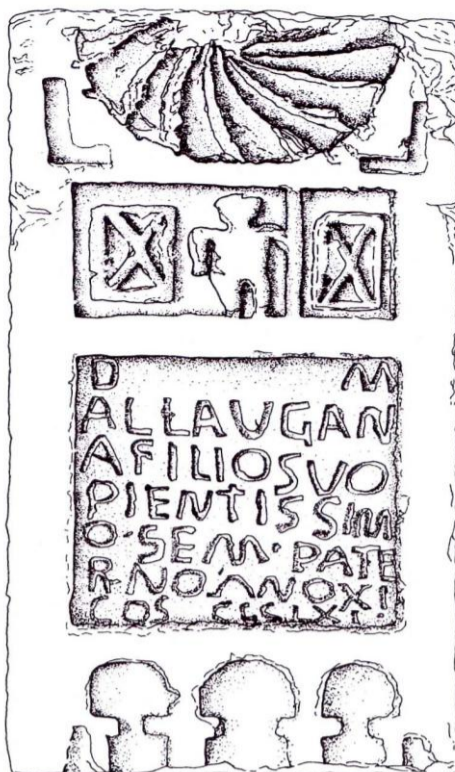 D M
ALLAUGAN
AFILIOSVO
PIENTISSIM
O·SEM·PATE
RNOANOXI
COS